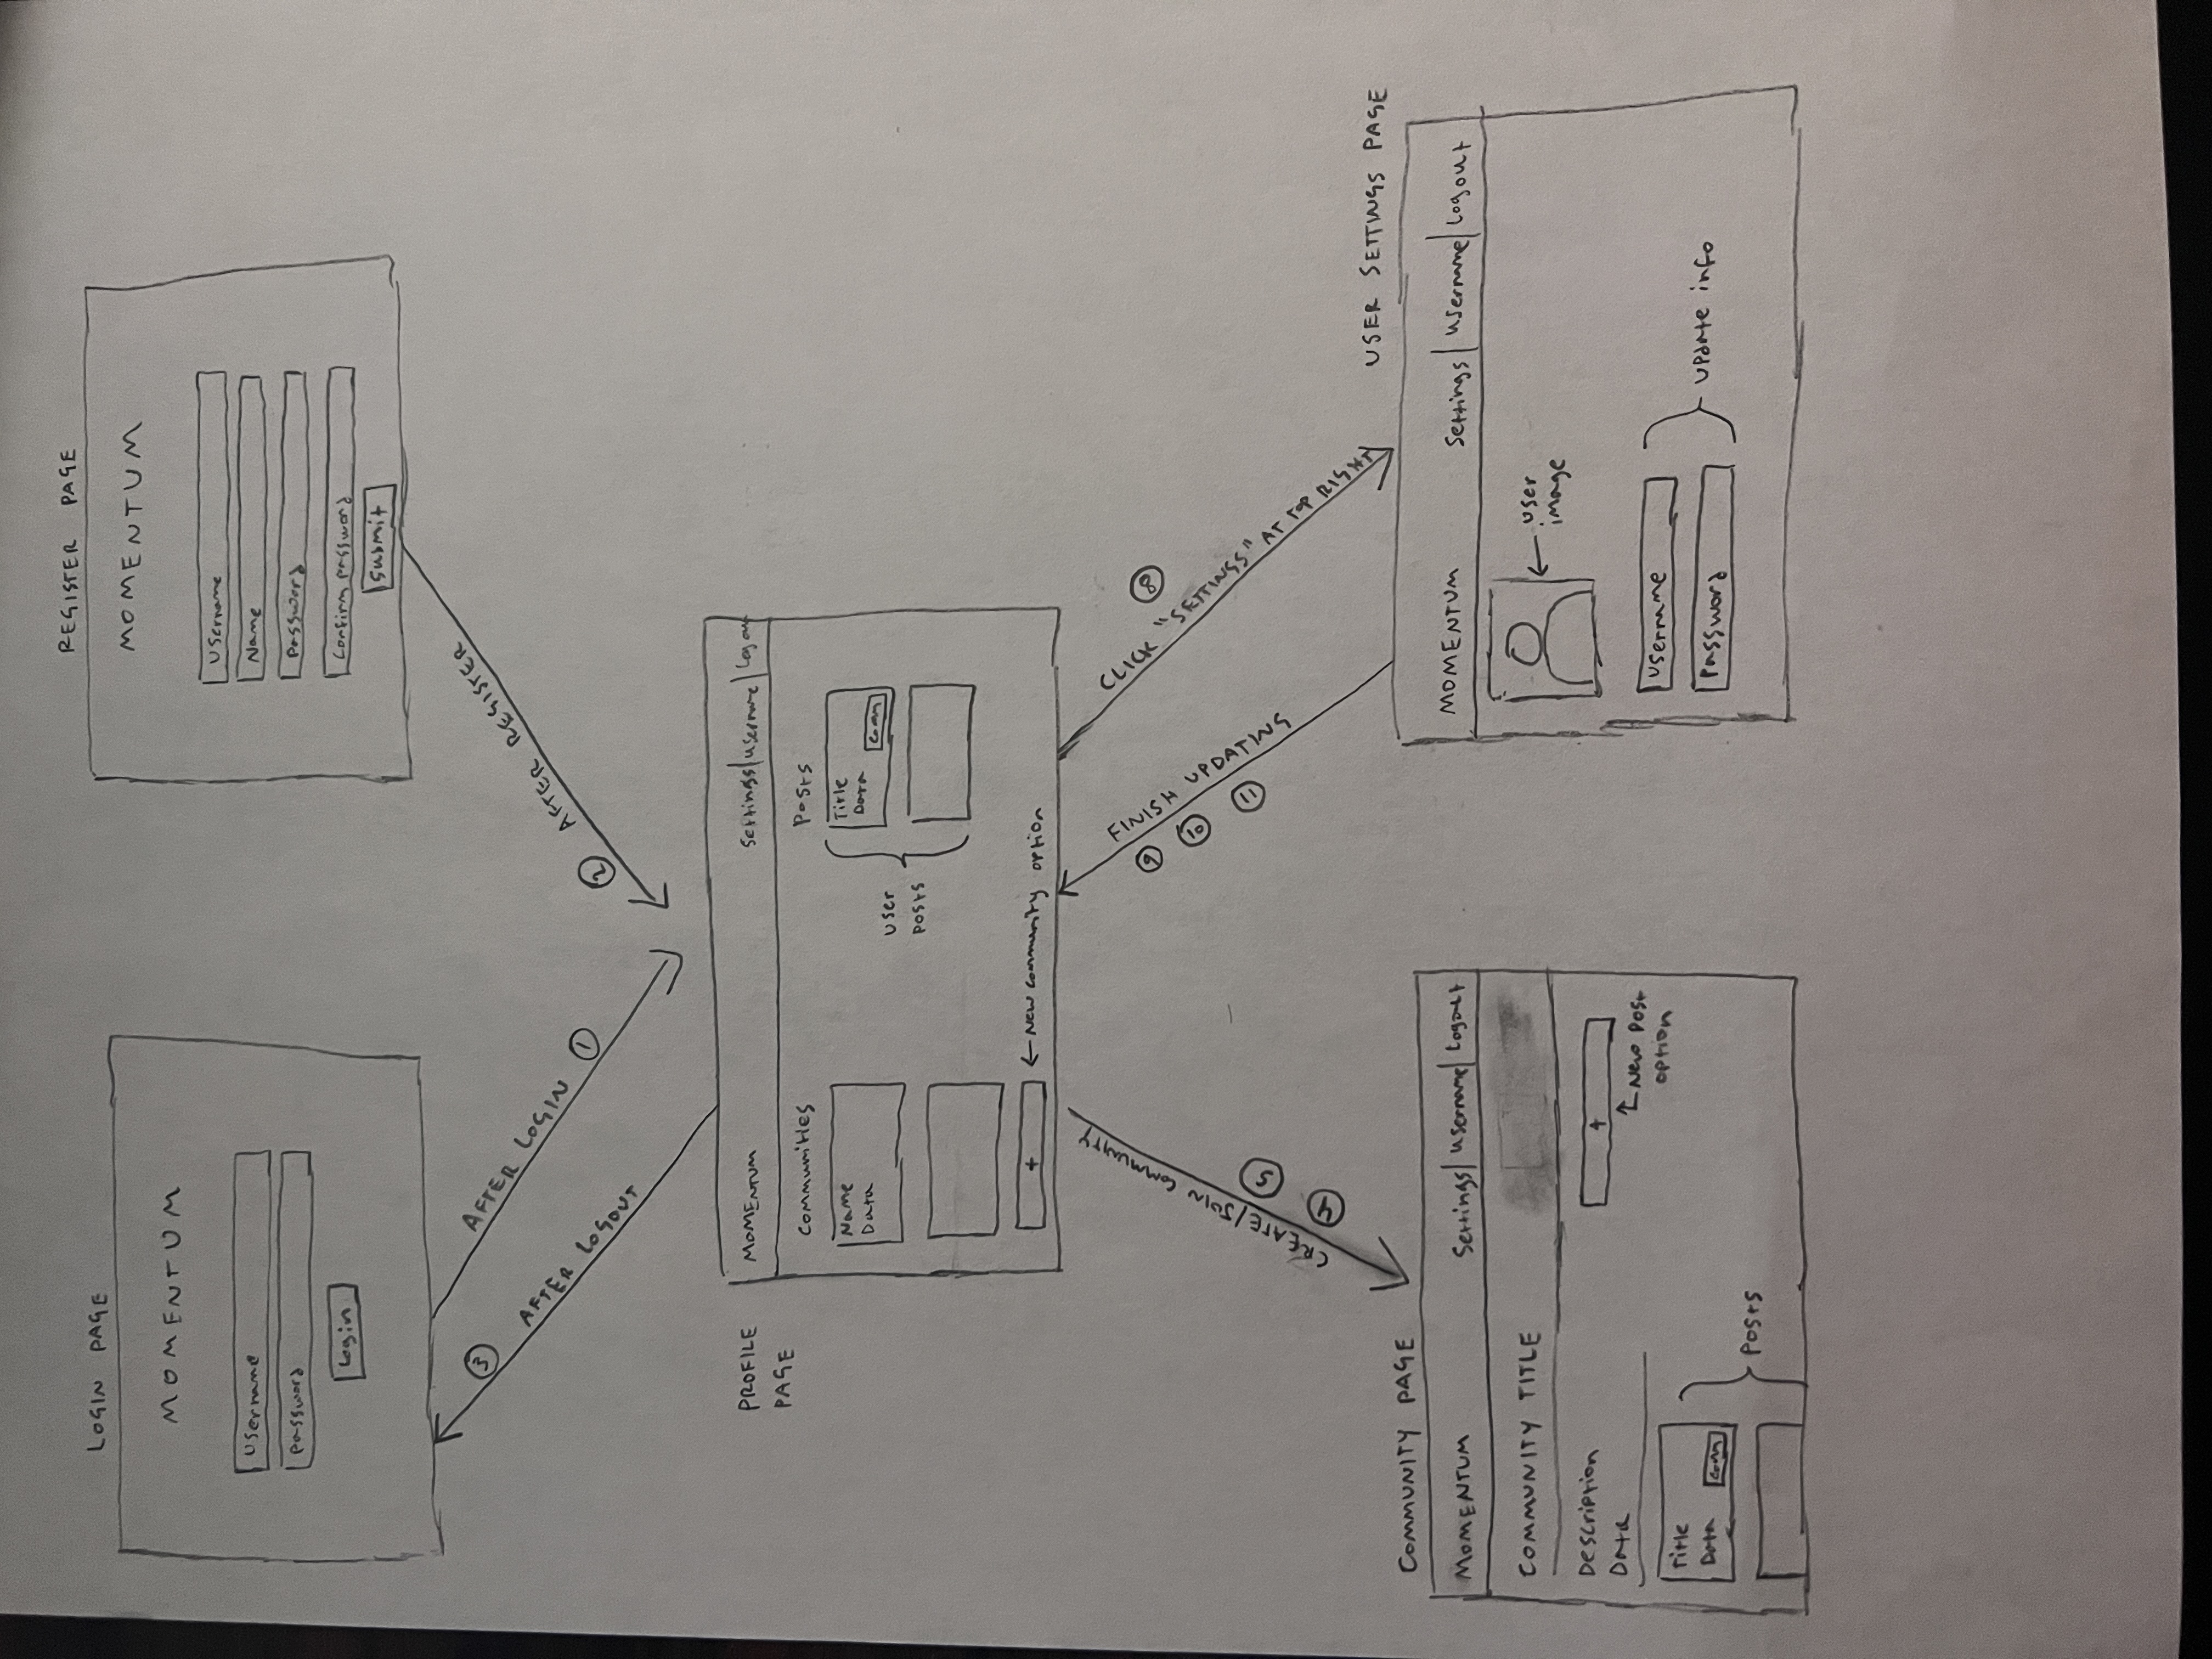 LOGIN PAGE
MOMENTUM
Username
Password
Login
REGISTER PAGE
MOMENTUM
Username
Name
Password
Confirm password
Submit
3 AFTER LOGOUT
AFTER LOGIN 1
2 AFTER REGISTER
PROFILE
PAGE
MOMENTUM
Settings|Username|Logout
Communities
Name
Data
+
←New community option
Posts
Title
Data
Comm
User
Posts
CREATE/JOIN COMMUNITY
4 5
FINISH UPDATING
9 10 11
CLICK "SETTINGS" AT TOP RIGHT
8
COMMUNITY PAGE
MOMENTUM
Settings|Username|Logout
COMMUNITY TITLE
Description
Data
+
New Post
option
Title
Data
Comm
Posts
USER SETTINGS PAGE
MOMENTUM
Settings|Username|Logout
← User
image
Username
Password
Update info